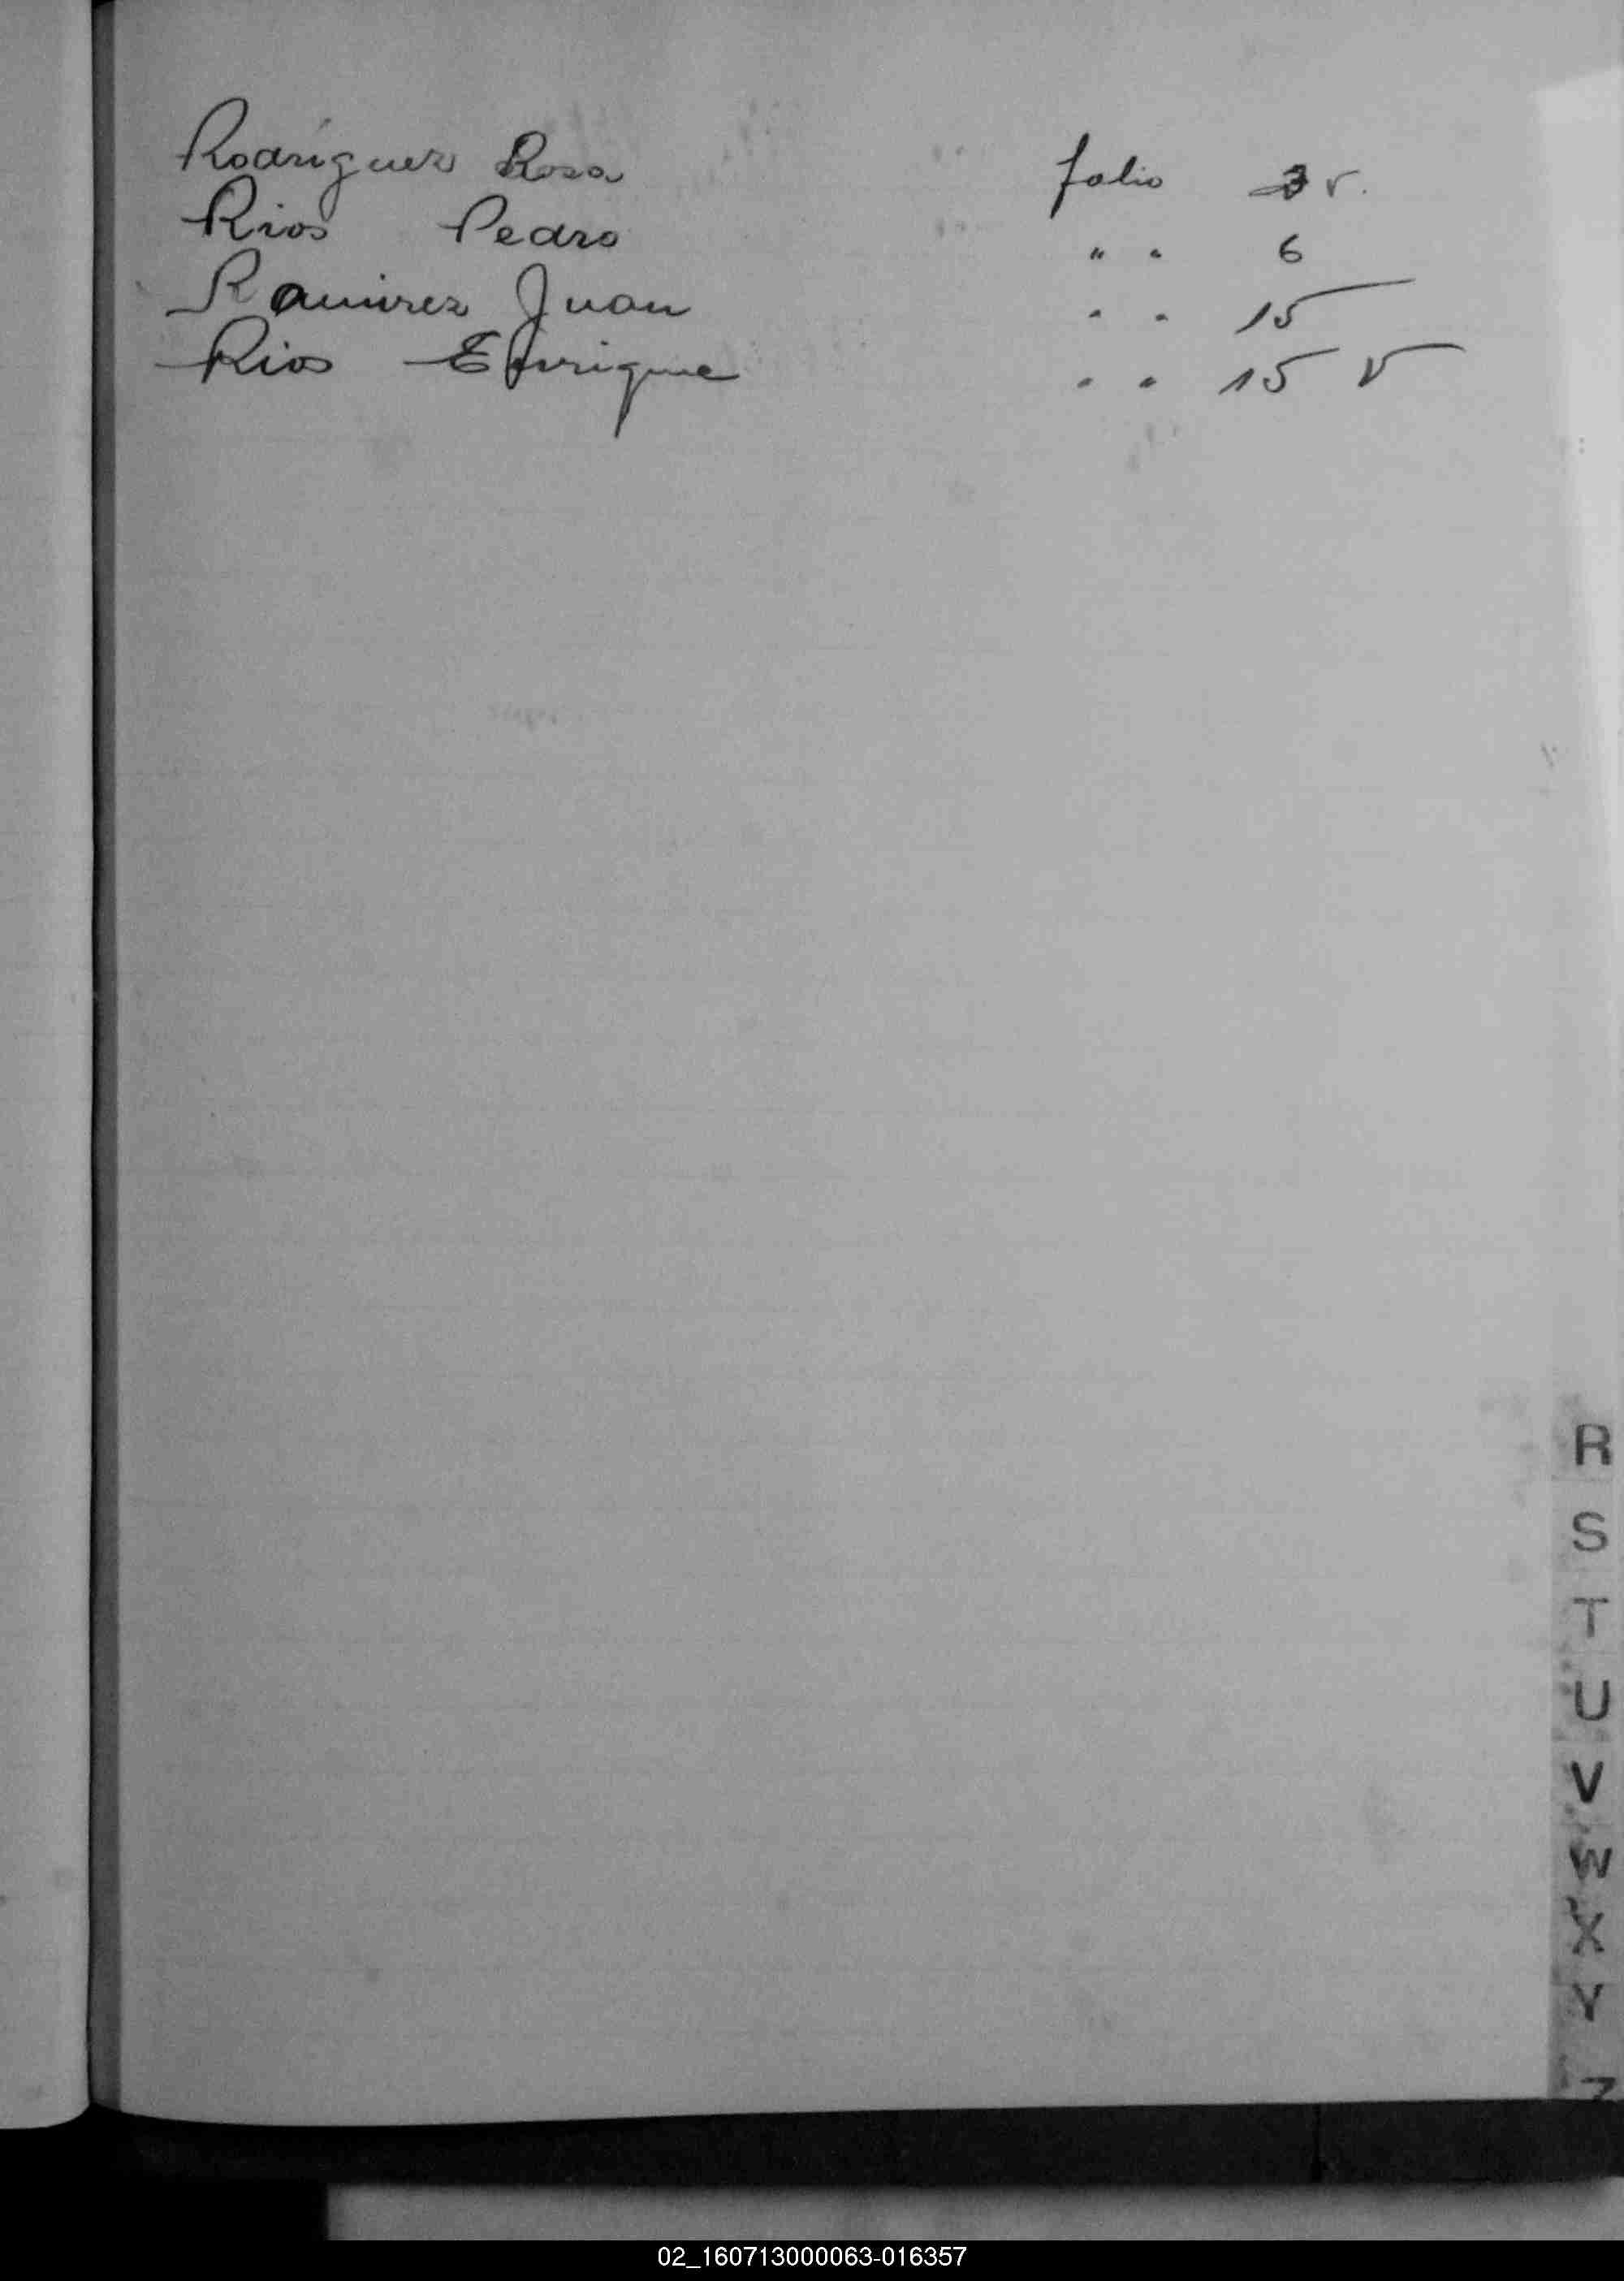 Rodríguez Rosa folio 3 v.
Rios Pedro " " 6
Ramirez Juan " " 15
Rios Enrique " " 15 v
R
S
T
U
V
W
X
Y
Z
02_160713000063-016357